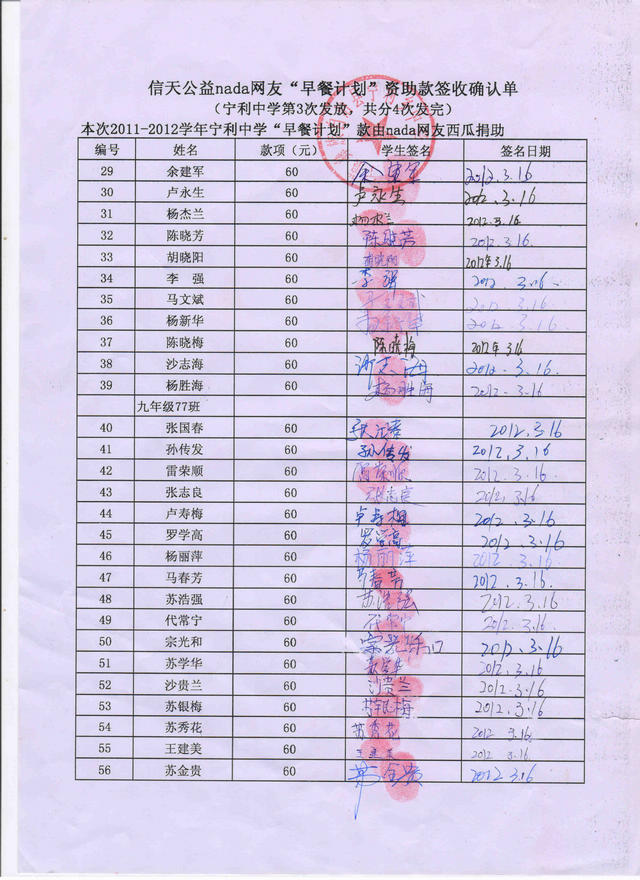 信天公益nada网友“早餐计划”资助款签收确认单
（宁利中学第3次发放，共分4次发完）
本次2011-2012学年宁利中学“早餐计划”款由nada网友西瓜捐助
编号 姓名 款项（元） 学生签名 签名日期
29 余建军 60 余建军 2012.3.16
30 卢永生 60 卢永生 2012.3.16
31 杨杰兰 60 杨杰兰 2012.3.16
32 陈晓芳 60 陈晓芳 2012.3.16
33 胡晓阳 60 胡晓阳 2012年3.16
34 李 强 60 李强 2012.3.16
35 马文斌 60 马文斌 2012.3.16
36 杨新华 60 2012.3.16
37 陈晓梅 60 陈晓梅 2012年3.16
38 沙志海 60 沙志海 2012.3.16
39 杨胜海 60 杨胜海 2012.3.16
九年级77班
40 张国春 60 张国春 2012.3.16
41 孙传发 60 孙传发 2012.3.16
42 雷荣顺 60 雷荣顺 2012.3.16
43 张志良 60 张志良 2012.3.16
44 卢寿梅 60 卢寿梅 2012.3.16
45 罗学高 60 罗学高 2012.3.16
46 杨丽萍 60 杨丽萍 2012.3.16
47 马春芳 60 马春芳 2012.3.16
48 苏浩强 60 苏浩强 2012.3.16
49 代常宁 60 代常宁 2012.3.16
50 宗光和 60 宗光和 2012.3.16
51 苏学华 60 苏学华 2012.3.16
52 沙贵兰 60 沙贵兰 2012.3.16
53 苏银梅 60 苏银梅 2012.3.16
54 苏秀花 60 苏秀花 2012.3.16
55 王建美 60 王建美 2012.3.16
56 苏金贵 60 苏金贵 2012.3.16